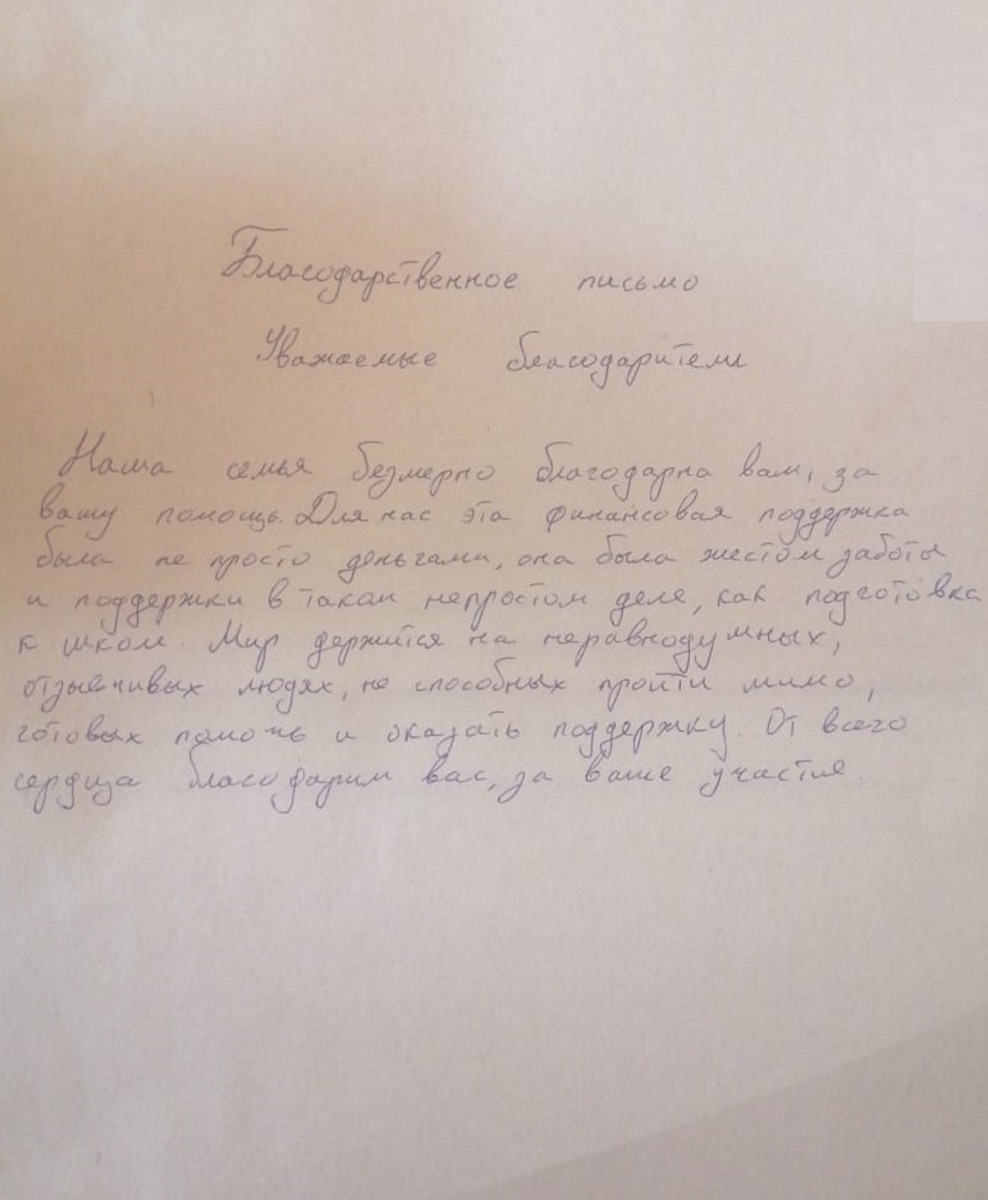 Благодарственное письмо
Уважаемые благодарители
Наша семья безмерно благодарна вам, за
вашу помощь. Для нас эта финансовая поддержка
была не просто деньгами, она была жестом заботы
и поддержки в таком непростом деле, как подготовка
к школе. Мир держится на неравнодушных,
отзывчивых людях, не способных пройти мимо,
готовых помочь и оказать поддержку. От всего
сердца благодарим вас, за ваше участие.